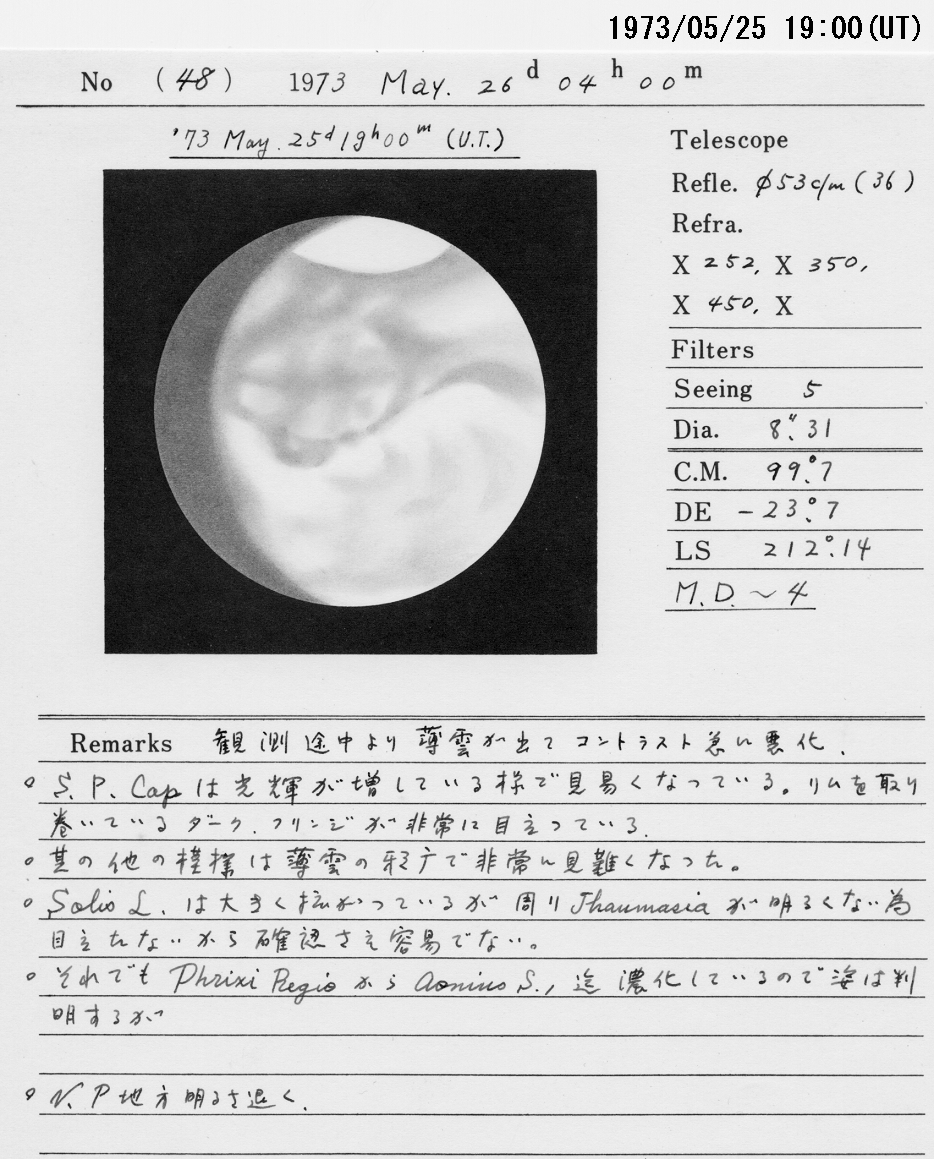 1973/05/25 19:00(UT)
No (48) 1973 May. 26d 04h 00m
'73 May. 25d 19h00m (U.T.)
Telescope
Refle. φ53c/m (36)
Refra.
X 252, X 350,
X 450, X
Filters
Seeing 5
Dia. 8".31
C.M. 99°.7
DE -23°.7
LS 212°.14
M.D. ~4
Remarks 観測途中より薄雲が出てコントラスト急に悪化.
○ S. P. Capは光輝が増している様で見易くなっている。リムを取り
巻いているダーク.フリンジが非常に目立っている.
○ 其の他の模様は薄雲の邪广で非常に見難くなった。
○ Solis L. は大きく拡がっているが周りThaumasiaが明るくない為
目立たないから確認さえ容易でない。
○ それでもPhrixi RegioからAonius S., 迄濃化しているので姿は判
明するが
○ N. P地方明るさ退く.